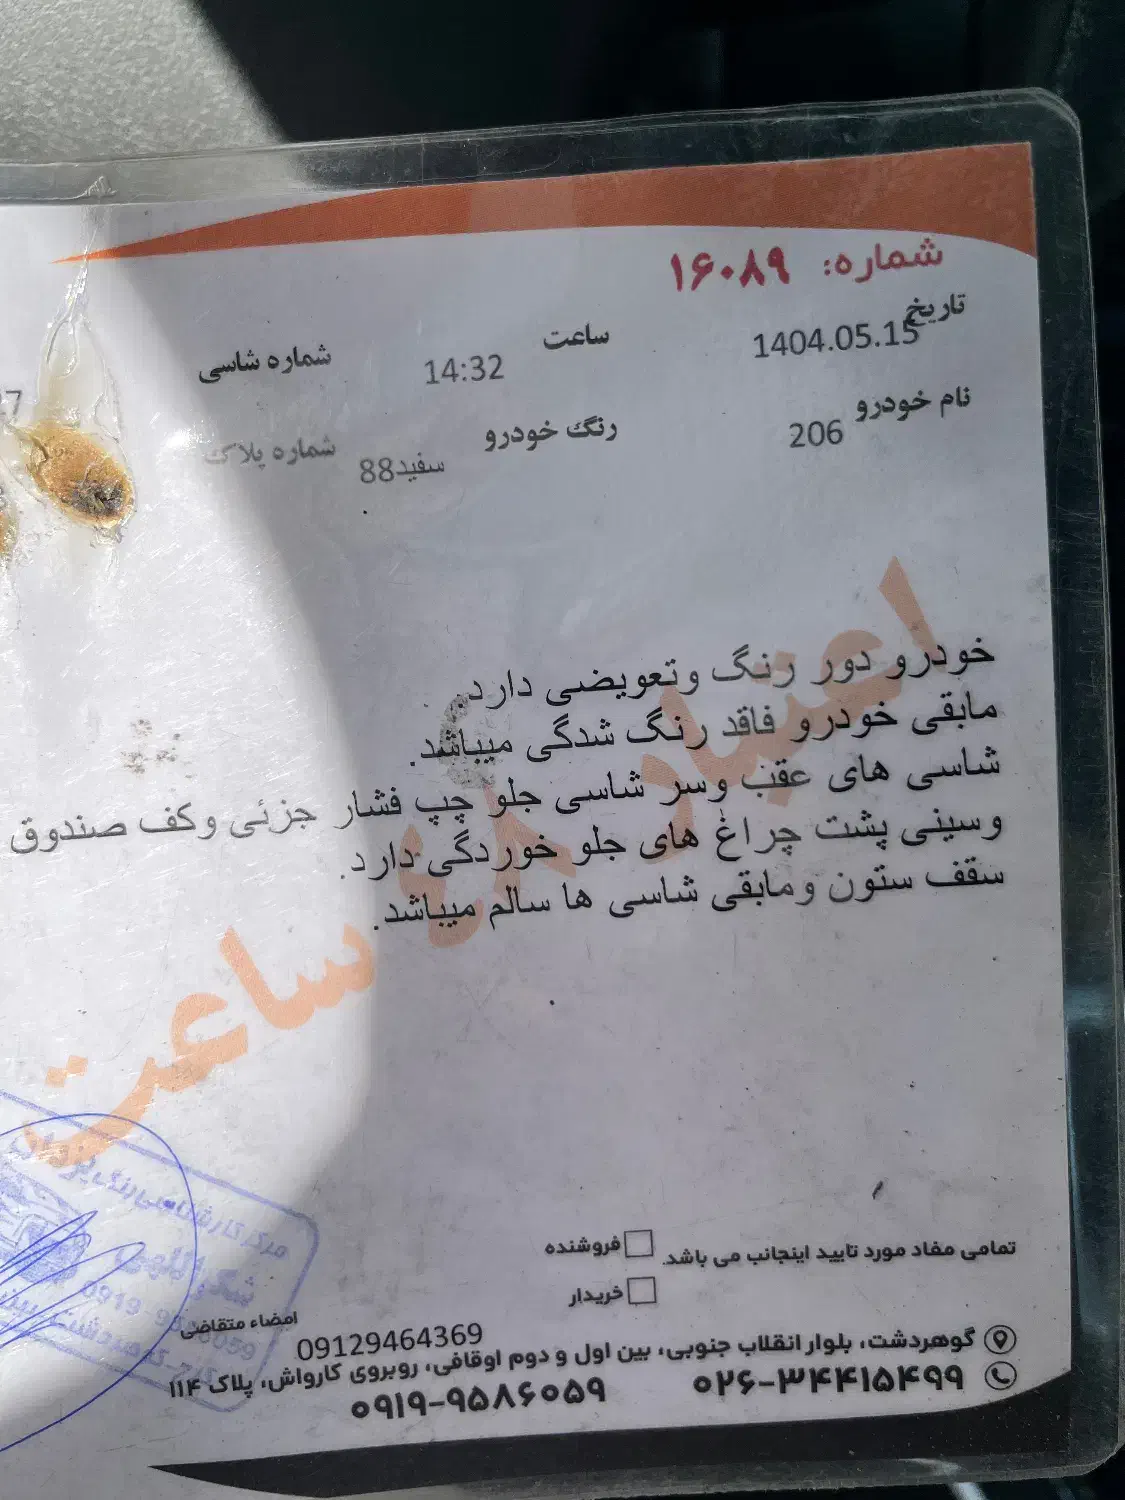 شماره: ۱۶۰۸۹
تاریخ 1404.05.15
ساعت 14:32
شماره شاسی
نام خودرو 206
رنگ خودرو سفید88
شماره پلاک
خودرو دور رنگ وتعویضی دارد.
مابقی خودرو فاقد رنگ شدگی میباشد.
شاسی های عقب وسر شاسی جلو چپ فشار جزئی وکف صندوق
وسینی پشت چراغ های جلو خوردگی دارد.
سقف ستون ومابقی شاسی ها سالم میباشد.
اعتبار ۴۸ ساعت
تمامی مفاد مورد تایید اینجانب می باشد.
فروشنده
خریدار
امضاء متقاضی
09129464369
گوهردشت، بلوار انقلاب جنوبی، بین اول و دوم اوقافی، روبروی کارواش، پلاک ۱۱۴
۰۲۶-۳۴۴۱۵۴۹۹
۰۹۱۹-۹۵۸۶۰۵۹